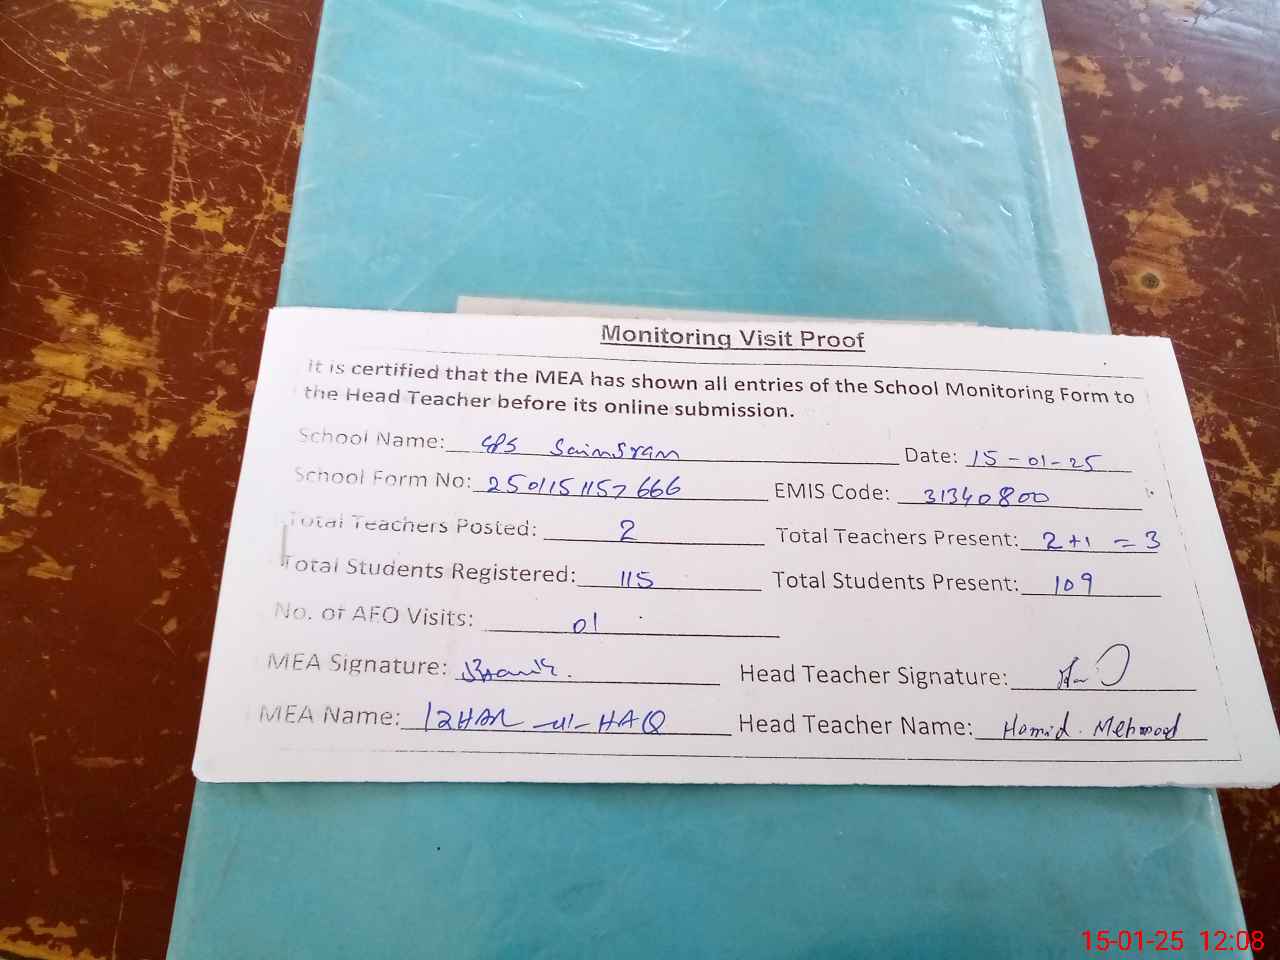 Monitoring Visit Proof
It is certified that the MEA has shown all entries of the School Monitoring Form to
the Head Teacher before its online submission.
School Name: GPS Date: 15-01-25
School Form No: 2501151157666 EMIS Code: 31340800
Total Teachers Posted: 2 Total Teachers Present: 2+1 = 3
Total Students Registered: 115 Total Students Present: 109
No. of AEO Visits: 01
MEA Signature: Head Teacher Signature:
MEA Name: IZHAR-ul-HAQ Head Teacher Name: Hamid Mehmood
15-01-25 12:08